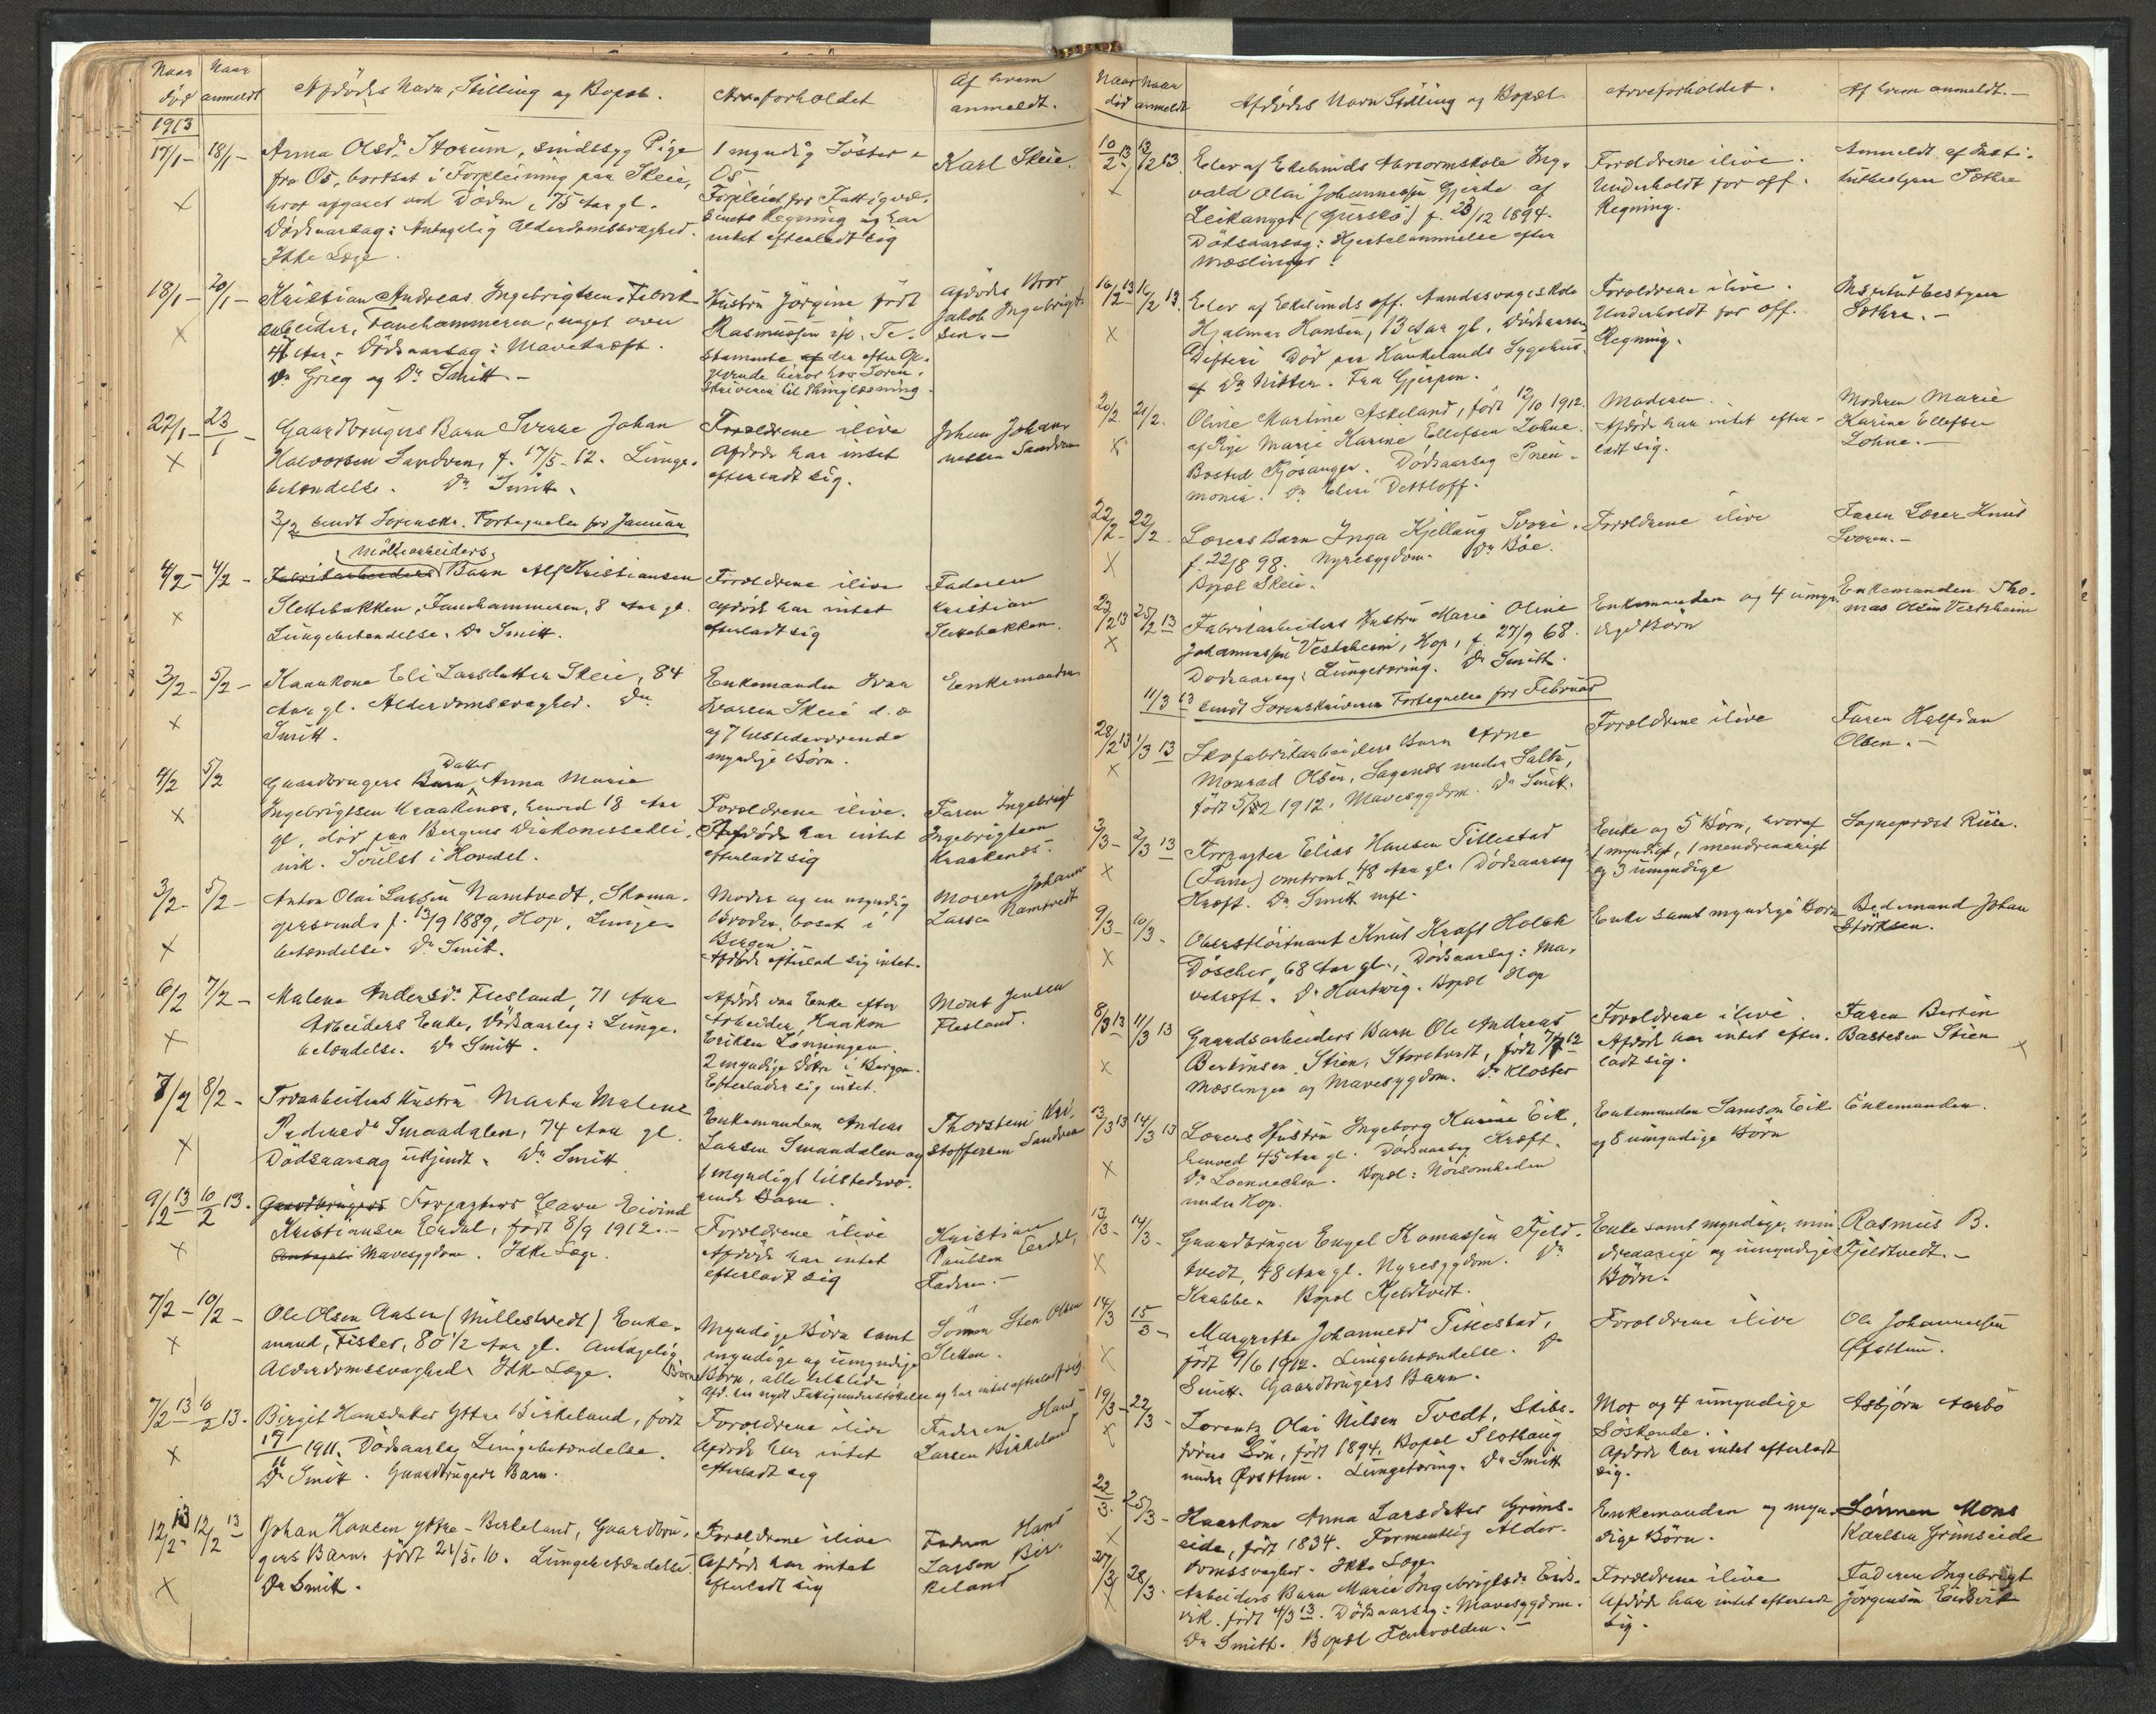 Naar død
Naar anmeldt
Afdødes Navn, Stilling og Bopæl.
Arveforholdet
Af hvem anmeldt.
1913
17/1 - 18/1 -
Anna Olsdr Storum, sindssyg Pige
fra Os, bortsat i Forpleining paa Skeie,
hvor afgaaet ved Døden, 75 Aar gl.
Dødsaarsag: Antagelig Alderdomssvaghed.
Ikke Læge.
1 myndig Søster
Os
Forpleiet for Fattigvæ-
senets Regning og har
intet efterladt sig
Karl Skeie.
18/1 - 20/1 -
Kristian Andreas Ingebrigtsen, Fabrik-
arbeider, Fanehammeren, noget over
Aar - Dødsaarsag: Mavekræft.
Dr Grieg og Dr Smitt. -
Hustru Jørgine født
Rasmussen
Afdødes Bror
Jakob Ingebrigt-
sen. -
22/1 - 23/1 -
Gaardbrugers Barn Sverre Johan
Halvorsen Sandven, f. 17/5-12. Lunge-
betændelse. Dr Smitt.
Forældrene ilive
Afdøde har intet
efterladt sig.
Johan Johan-
nessen Sandven
3/2 sendt Sorenskr. Fortegnelse for Januar
4/2 - 4/2 -
Möllearbeiders
Fabrikarbeiders Barn Alf Kristiansen
Slettebakken, Fanehammeren, 8 Aar gl.
Lungebetændelse. Dr Smitt.
Forældrene ilive
Afdøde har intet
efterladt sig
Faderen
Kristian
Slettebakken.
3/2 - 5/2 -
Kaarkone Eli Larsdatter Skeie, 84
Aar gl. Alderdomssvaghed. Dr
Smitt.
Enkemanden Ivar
Iversen Skeie d.o
og 7 tilstedeværende
myndige Børn.
Enkemanden
4/2 5/2
Gaardbrugers Barn Datter Anna Marie
Ingebrigtsen Kraakenes, henved 18 Aar
gl, død paa Bergens Diakonissekli-
nik. Svulst i Hovedet.
Forældrene ilive.
Afdøde har intet
efterladt sig
Faren Ingebrigt
Ingebrigtsen
Kraakenes -
3/2 - 5/2 -
Anton Olai Larsen Namtvedt, Skoma-
gersvend, f. 13/9 1889, Hop, Lunge-
betændelse. Dr Smitt.
Moder og en myndig
Broder, bosat i
Bergen.
Afdøde efterlod sig intet.
Moren Johanne
Larsen Namtvedt
6/2 7/2 -
Malene Andersdr Flesland, 71 Aar
Arbeiders Enke, Dødsaarsag: Lunge-
betændelse. Dr Smitt.
Afdøde var Enke efter
Arbeider Haakon
Eriksen Lønningen
2 myndige Døtre i Bergen.
Efterlader sig intet.
Mons Jensen
Flesland.
7/2 8/2 -
Træarbeiders Hustru Marta Malene
Pedersdr Smaadalen, 74 Aar gl.
Dødsaarsag ukjendt. Dr Smitt
Enkemanden Andreas
Larsen Smaadalen og
1 myndigt tilstedevæ-
rende Barn.
Thorstein Kri-
stoffersen Sandven
9/2 13 10/2 13.
Gaardbrugers Forpagters Barn Eivind
Kristiansen Erdal, født 8/9 1912. -
Antagelig Mavesygdom. Ikke Læge.
Forældrene ilive
Afdøde har intet
efterladt sig
Kristian
Paulsen Erdal,
Faderen. -
7/2 - 10/2 -
Ole Olsen Aasen (Millestvedt) Enke-
mand, Fisker, 80 1/2 Aar gl. Antagelig
Alderdomssvaghed. Ikke Læge.
Myndige Børn samt
myndige og umyndige
Børne Børn, alle tilstede
Afd. har nydt Fattigunderstøttelse og har intet efterladt sig.
Sønnen Sten Olsen
Sletten.
7/2 13 10/2 13.
Birgit Hansdatter Ytre Birkeland, født
19/11 1911. Dødsaarsag Lungebetændelse.
Dr Smitt. Gaardbrugers Barn.
Forældrene ilive
Afdøde har intet
efterladt sig
Faderen Hans
Larsen Birkeland
12/2 13 12/2 13
Johan Hansen Ytre - Birkeland, Gaardbru-
gers Barn. født 21/5. 10. Lungebetændelse.
Dr Smitt.
Forældrene ilive
Afdøde har intet
efterladt sig
Faderen Hans
Larsen Bir-
keland
Naar død
Naar anmeldt
Afdødes Navn Stilling og Bopæl
Arveforholdet.
Af hvem anmeldt. -
10/2 13 13/2 13
Elev af Ekelunds Abnormskole Ing-
vald Olai Johannessen Gjerde af
Leikanger (Gurskø) f. 23/12 1894.
Dødsaarsag: Hjertelammelse efter
Mæslinger.
Forældrene ilive.
Underholdt for off.
Regning.
Anmeldt af Insti-
tutbestyrer Sæthre
16/2 13 16/2 13.
Elev af Ekelunds off. Aandssvageskole
Hjalmar Hansen, 13 Aar gl. Dødsaarsag
Difteri Død paa Haukelands Sygehus.
Dr Nitter. Fra Gjerpen.
Forældrene ilive.
Underholdt for off.
Regning.
Institutbestyrer
Sæthre. -
20/2 21/2.
Oline Martine Askeland, født 12/10 1912.
af Pige Marie Karine Ellefsen Lohne.
Bosted Fjøsanger. Dødsaarsag Pneu-
monia. Dr Elise Dethloff.
Moderen.
Afdøde har intet efter-
ladt sig.
Moderen Marie
Karine Ellefsen
Lohne. -
22/2 - 22/2 -
Lærers Barn Inga Kjellaug Svoren.
f. 22/8 98. Nyresygdom. Dr Bøe.
Bopæl Skeie.
Forældrene ilive
Faren Lærer Knut
Svoren. -
23/2 13 25/2 13
Fabrikarbeiders Hustru Marie Oline
Johannessen Vestrheim, Hop, f. 27/9 68.
Dødsaarsag: Lungetæring. Dr Smitt.
Enkemanden og 4 umyn-
dige Børn
Enkemanden Tho-
mas Olsen Vestrheim
11/3 13 sendt Sorenskriveren Fortegnelse for Februar
28/2 13 1/3 13
Skofabrikarbeiders Barn Arne
Monrad Olsen, Sagenes under Salbu,
født 5/2 1912. Mavesygdom. Dr Smitt.
Forældrene ilive
Faren Halfdan
Olsen. -
2/3 - 2/3 13
Forpagter Elias Hansen Tillestad
(Fane) omtrent 48 Aar gl. Dødsaarsag
Kræft. Dr Smitt
Enke og 5 Børn, hvoraf
1 myndigt, 1 mindreaarigt
og 3 umyndige
Sogneprest Riise.
9/3 - 10/3 -
Oberstløitnant Knut Kraft Holck
Döscher, 68 Aar gl., Dødsaarsag: Ma-
vekræft. Dr Hartwig. Bopæl Hop
Enke samt myndige Børn
Bedemand Johan
Størksen.
8/3 13 11/3 13
Gaardsarbeiders Barn Ole Andreas
Bertinsen Stien, Storetvedt, født 7/7 12
Mæslinger og Mavesygdom. Dr Kloster
Forældrene ilive.
Afdøde har intet efter-
ladt sig.
Faren Bertin
Bastesen Stien
13/3 13 14/3 13
Lærers Hustru Ingeborg Karine Eik,
henved 45 Aar gl. Dødsaarsag Kræft.
Dr Loennechen. Bopæl: Nøisomheden
under Hop.
Enkemanden Samson Eik
og 8 umyndige Børn
Enkemanden.
13/3 - 14/3 -
Gaardbruger Engel Thomassen Fjeld-
tvedt, 48 Aar gl. Nyresygdom. Dr
Krabbe. Bopæl Fjeldtvedt.
Enke samt myndige, min-
dreaarige og umyndige
Børn.
Rasmus B.
Fjeldtvedt. -
14/3 15/3 -
Margrethe Johannesdr Titlestad,
født 9/6 1912. Lungebetændelse. Dr
Smitt. Gaardbrugers Barn.
Forældrene ilive
Ole Johannessen
Øfsttun.
19/3 - 22/3 -
Lorentz Olai Nilsen Tvedt, Skibs-
førers Søn, født 1894, Bopæl Slothaug
under Øvsttun. Lungetæring. Dr Smitt
Mor og 4 umyndige
Søskende.
Afdøde har intet efterladt
sig.
Asbjørn Aarbø
22/3. 25/3 -
Kaarkone Anna Larsdatter Grims-
eide, født 1834. Formentlig Alder-
domssvaghed. Ikke Læge
Enkemanden og myn-
dige Børn.
Sønnen Mons
Karlsen Grimseide
27/3 28/3.
Arbeiders Barn Marie Ingebrigtsdr Eids-
vik. født 4/3 13. Dødsaarsag: Mavesygdom.
Dr Smitt. Bopæl Fanevolden. -
Forældrene ilive
Afdøde har intet efterladt
sig.
Faderen Ingebrigt
Jørgensen Eidsvik